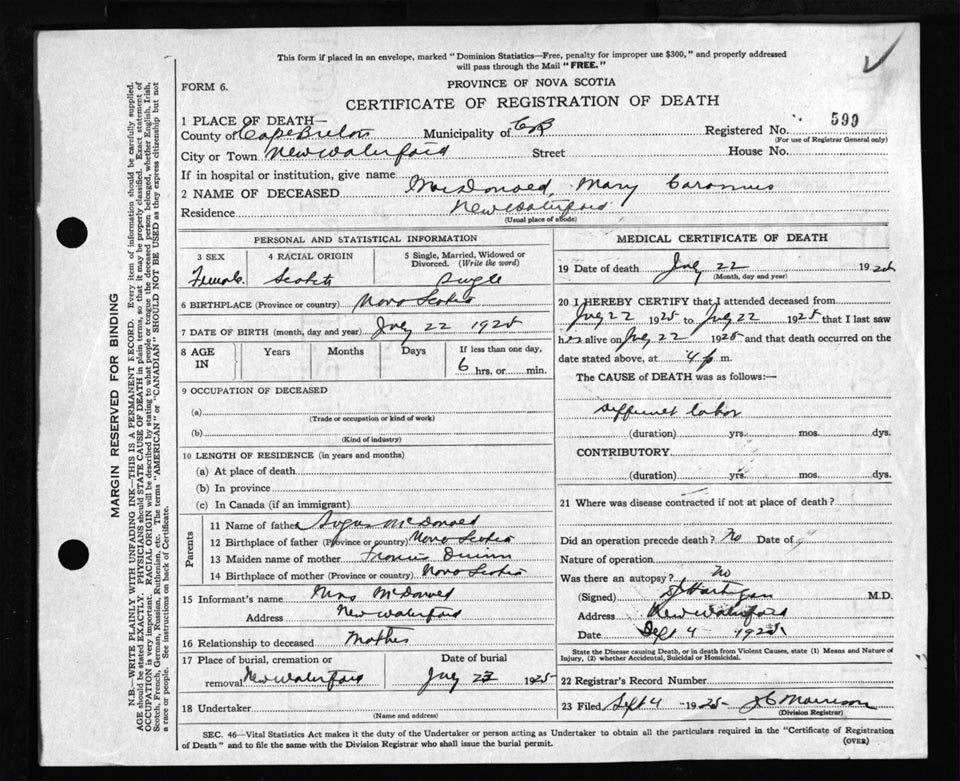 This form if placed in an envelope, marked "Dominion Statistics—Free, penalty for improper use $300," and properly addressed
will pass through the Mail "FREE."
FORM 6.
PROVINCE OF NOVA SCOTIA
CERTIFICATE OF REGISTRATION OF DEATH
1 PLACE OF DEATH—
County of Cape Breton Municipality of CB Registered No. 599
(For use of Registrar General only)
City or Town New Waterford Street House No.
If in hospital or institution, give name
2 NAME OF DECEASED MacDonald, Mary
Residence New Waterford
(Usual place of abode)
PERSONAL AND STATISTICAL INFORMATION
3 SEX 4 RACIAL ORIGIN 5 Single, Married, Widowed or Divorced. (Write the word)
Female Scotch Single
6 BIRTHPLACE (Province or country) Nova Scotia
7 DATE OF BIRTH (month, day and year) July 22 1925
8 AGE IN Years Months Days If less than one day, 6 hrs. or min.
9 OCCUPATION OF DECEASED
(a)
(Trade or occupation or kind of work)
(b)
(Kind of industry)
10 LENGTH OF RESIDENCE (in years and months)
(a) At place of death
(b) In province
(c) In Canada (if an immigrant)
Parents
11 Name of father Angus McDonald
12 Birthplace of father (Province or country) Nova Scotia
13 Maiden name of mother Francis Quinn
14 Birthplace of mother (Province or country) Nova Scotia
15 Informant's name Mrs McDonald
Address New Waterford
16 Relationship to deceased Mother
17 Place of burial, cremation or Date of burial
removal New Waterford July 23 1925
18 Undertaker
(Name and address)
MEDICAL CERTIFICATE OF DEATH
19 Date of death July 22 1925
(Month, day and year)
20 I HEREBY CERTIFY that I attended deceased from
July 22 1925 to July 22 1925 that I last saw
her alive on July 22 1925 and that death occurred on the
date stated above, at 4 p m.
The CAUSE of DEATH was as follows:—
labor
(duration) yrs. mos. dys.
CONTRIBUTORY
(duration) yrs. mos. dys.
21 Where was disease contracted if not at place of death?
Did an operation precede death? No Date of
Nature of operation
Was there an autopsy? no
(Signed) Hartigan M.D.
Address New Waterford
Date Sept 4 1925
State the Disease causing Death, or in death from Violent Causes, state (1) Means and Nature of
Injury, (2) whether Accidental, Suicidal or Homicidal.
22 Registrar's Record Number
23 Filed Sept 4 1925 J C Morrison
(Division Registrar)
SEC. 46—Vital Statistics Act makes it the duty of the Undertaker or person acting as Undertaker to obtain all the particulars required in the "Certificate of Registration
of Death" and to file the same with the Division Registrar who shall issue the burial permit. (OVER)
MARGIN RESERVED FOR BINDING
N.B.—WRITE PLAINLY WITH UNFADING INK—THIS IS A PERMANENT RECORD. Every item of information should be carefully supplied.
AGE should be stated EXACTLY. PHYSICIANS should STATE CAUSE OF DEATH in plain terms, so that it may be properly classified. Exact statement of
OCCUPATION is very important. RACIAL ORIGIN will be described by stating to what people or tongue the deceased person belonged, whether English, Irish,
Scotch, French, German, Russian, Ruthenian, etc. The terms "AMERICAN" or "CANADIAN" SHOULD NOT BE USED as they express citizenship but not
a race or people. See instructions on back of Certificate.